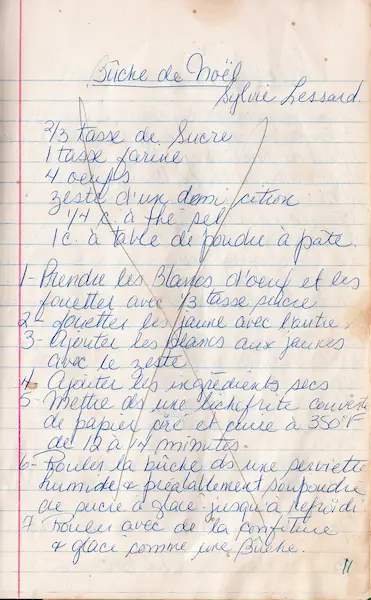 Bûche de Noël
Sylvie Lessard
2/3 tasse de sucre
1 tasse farine
4 oeufs
zeste d'un demi citron
1/4 c. à thé sel
1 c. à table de poudre à pâte.
1- Prendre les blancs d'oeuf et les
fouetter avec 1/3 tasse sucre
2- fouetter les jaune avec l'autre.
3- ajouter les blancs aux jaunes
avec le zeste
4- Ajouter les ingrédients secs
5- Mettre ds une lichefrite couverte
de papier ciré et cuire à 350°F
de 12 à 14 minutes.
6- Rouler la bûche ds une serviette
humide & préalablement soupoudré
de sucre à glacé jusqu'à refroidi.
7- Rouler avec de la confiture
& glacé comme une Bûche.
11